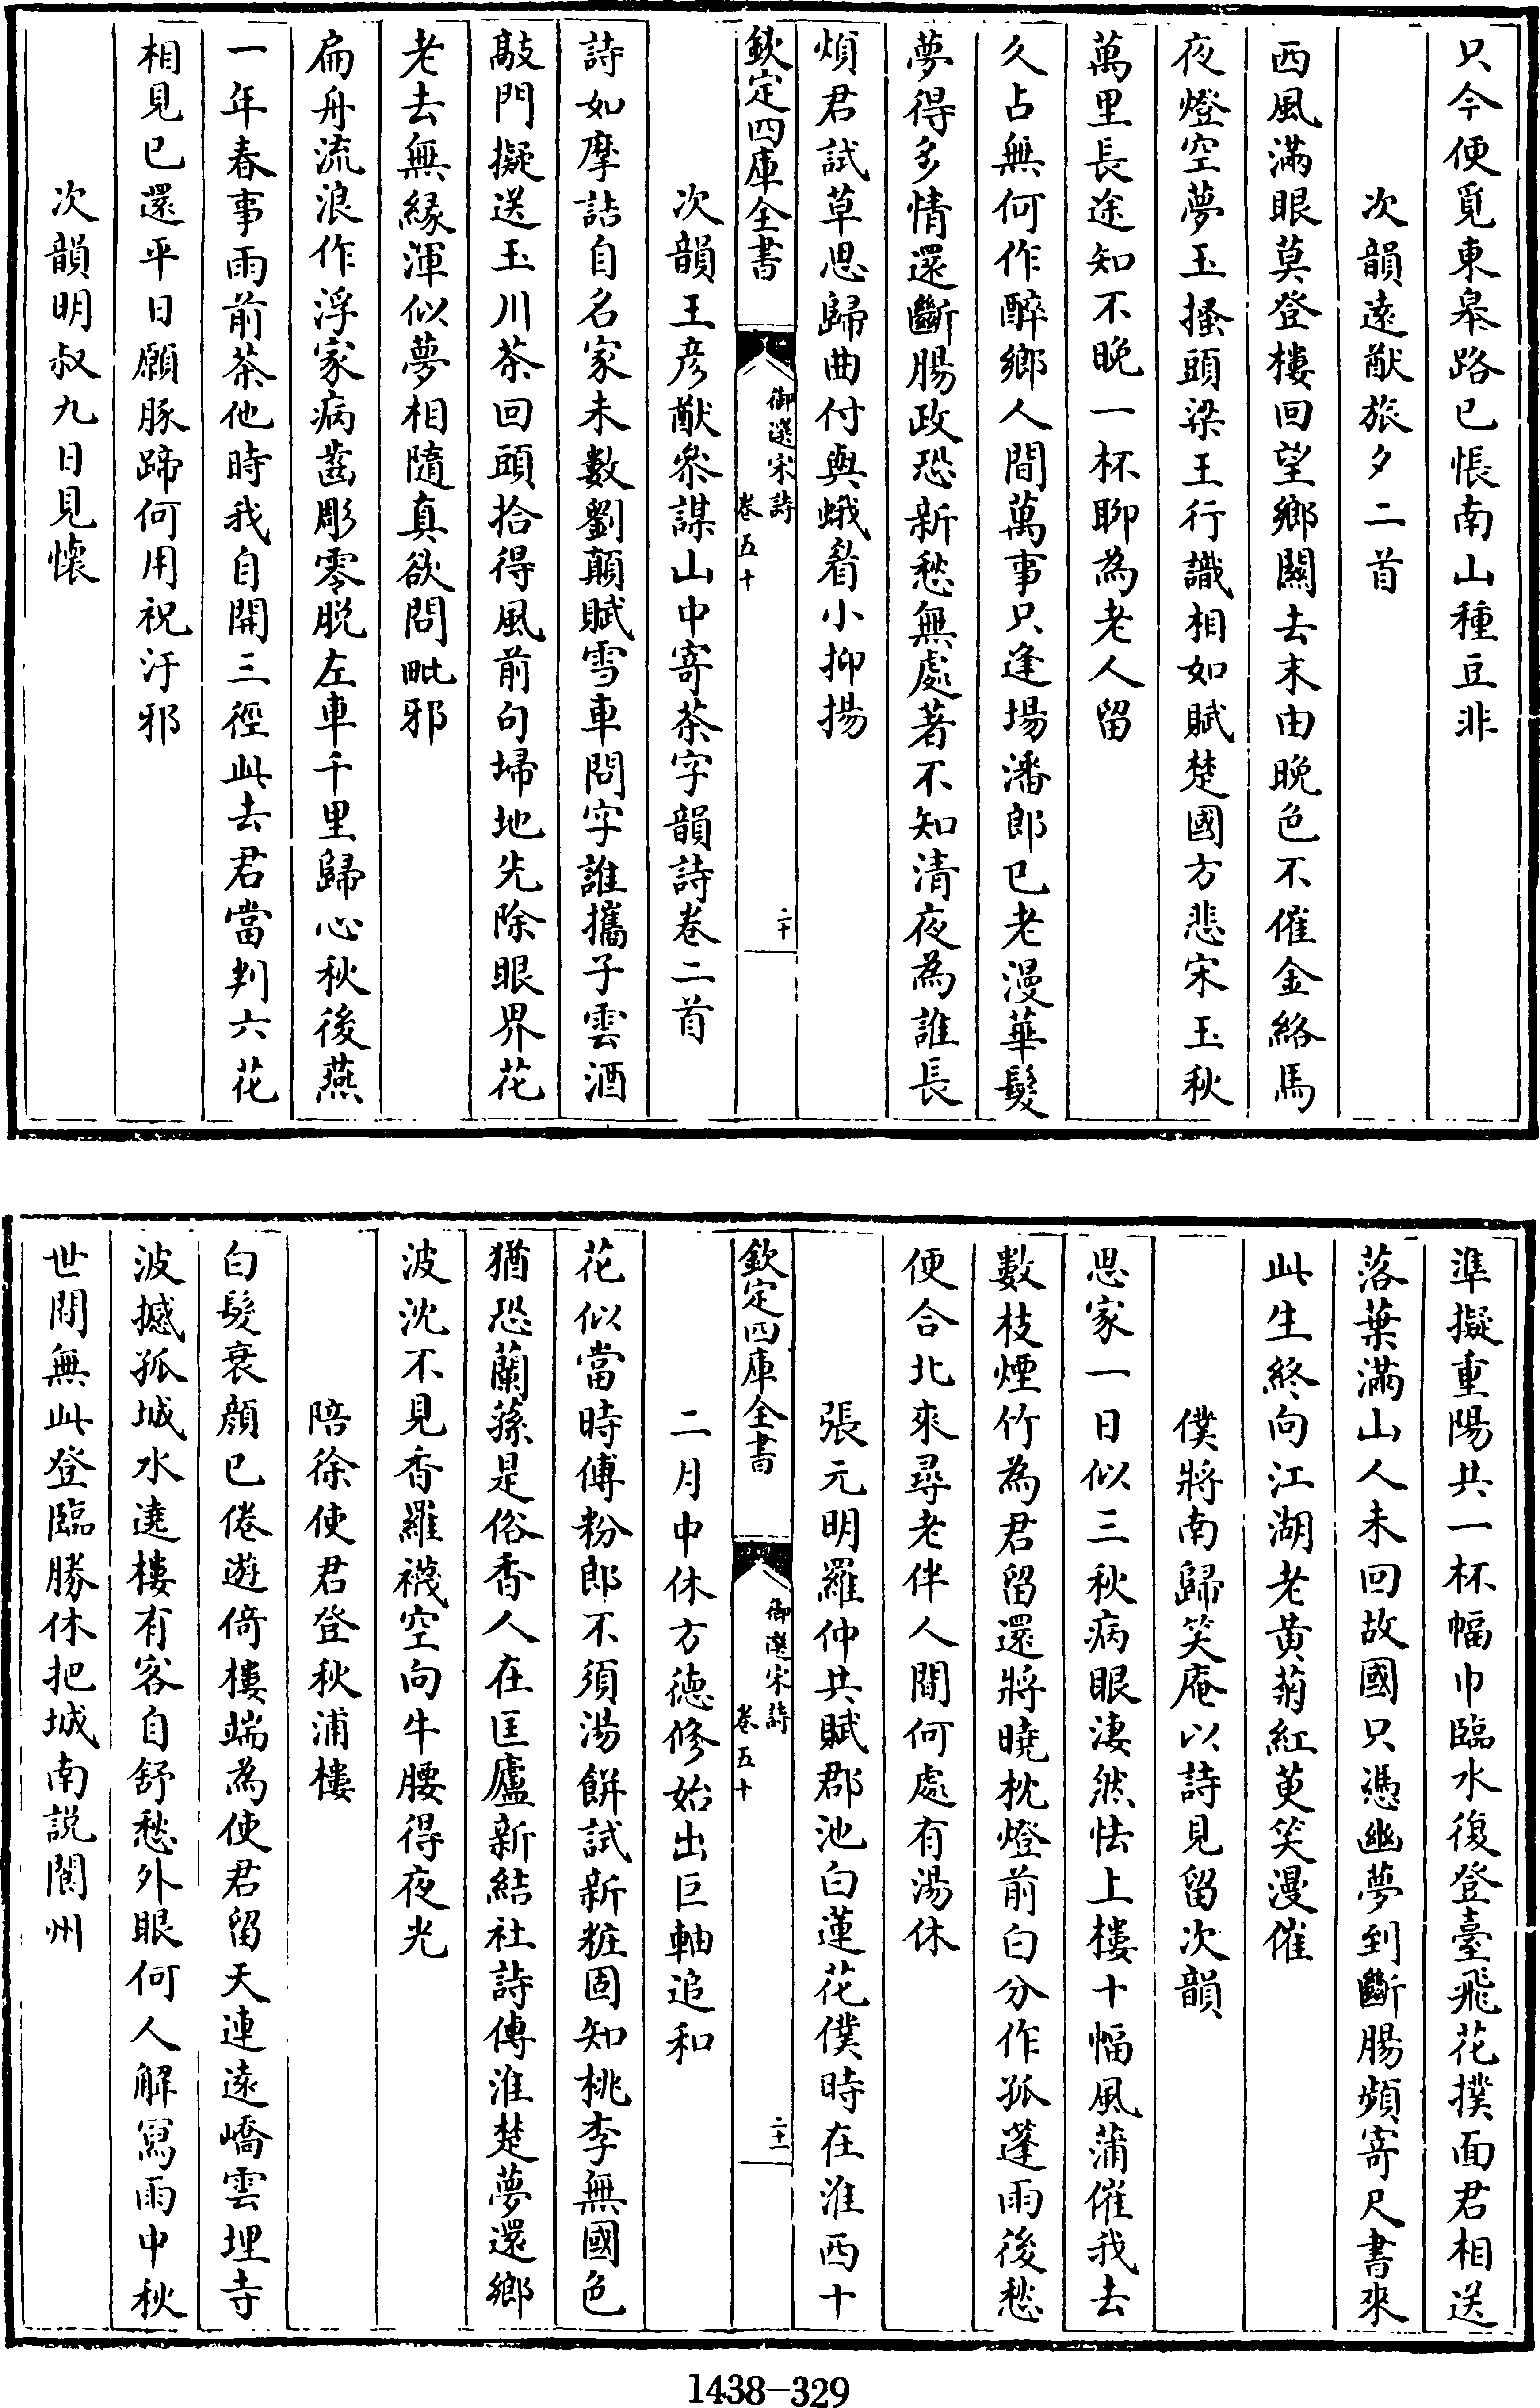 只今便覓東皋路已悵南山種豆非
次韻遠猷旅夕二首
西風滿眼莫登樓回望鄉關去末由晚色不催金絡馬
夜燈空夢玉搔頭梁王行識相如賦楚國方悲宋玉秋
萬里長途知不晚一杯聊為老人留
久占無何作醉鄉人間萬事只逢場潘郎已老漫華髮
夢得多情還斷腸政恐新愁無處著不知清夜為誰長
煩君試草思歸曲付與蛾眉小抑揚
欽定四庫全書
御選宋詩
卷五十
二十
次韻王彦猷叅謀山中寄茶字韻詩卷二首
詩如摩詰自名家未數劉顛賦雪車問字誰攜子雲酒
敲門擬送玉川茶回頭拾得風前句埽地先除眼界花
老去無縁渾似夢相隨真欲問毗邪
扁舟流浪作浮家病齒彫零脱左車千里歸心秋後燕
一年春事雨前茶他時我自開三徑此去君當判六花
相見已還平日願豚蹄何用祝汙邪
次韻明叔九日見懷
準擬重陽共一杯幅巾臨水復登臺飛花撲面君相送
落葉滿山人未回故國只憑幽夢到斷腸頻寄尺書來
此生終向江湖老黄菊紅萸笑漫催
僕將南歸笑庵以詩見留次韻
思家一日似三秋病眼淒然怯上樓十幅風蒲催我去
數枝煙竹為君留還將曉枕燈前白分作孤蓬雨後愁
便合北來尋老伴人間何處有湯休
張元明羅仲共賦郡池白蓮花僕時在淮西十
二月中休方德修始出巨軸追和
欽定四庫全書
御選宋詩
卷五十
二十一
花似當時傅粉郎不須湯餅試新粧固知桃李無國色
猶恐蘭蓀是俗香人在匡廬新結社詩傳淮楚夢還鄉
波沈不見香羅襪空向牛腰得夜光
陪徐使君登秋浦樓
白髮衰顔已倦遊倚樓端為使君留天連遠嶠雲埋寺
波撼孤城水遶樓有客自舒愁外眼何人解寫雨中秋
世間無此登臨勝休把城南説閬州
1438-329